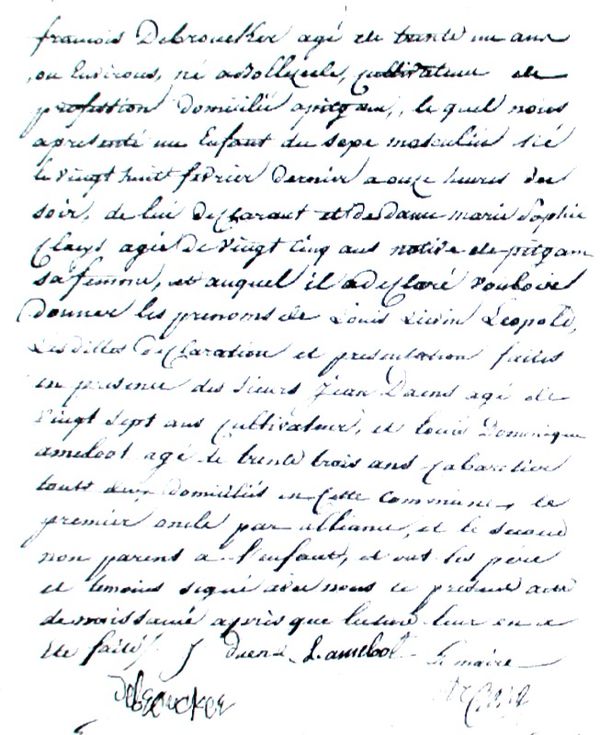 françois Debroucker agé de trente un ans
, ou Environs, né a Volkezeele, Cultivateur de
profession domicilié a pitgam,, le quel nous
a presenté un Enfant du sexe masculin né
le vingt huit fevrier dernier a onze heures du
soir, de lui declarant et de dame marie Sophie
Claeys agée de vingt Cinq ans native de pitgam
sa femme, et auquel il a declaré vouloir
donner les prenoms de Louis Livin Leopold,
Les dittes declaration et presentation faites
en presence des sieurs Jean Daens agé de
vingt sept ans Cultivateur, et Louis Dominique
ameloot agé de trente trois ans Cabaretier
tous deux domiciliés en Cette Commune, le
premier oncle par alliance, et le second
non parent a l'enfant, et ont les père
et temoins signé avec nous le present acte
de naissance après que lecture leur en a
eté faite / J Daens L ameloot le maire
Debroucker